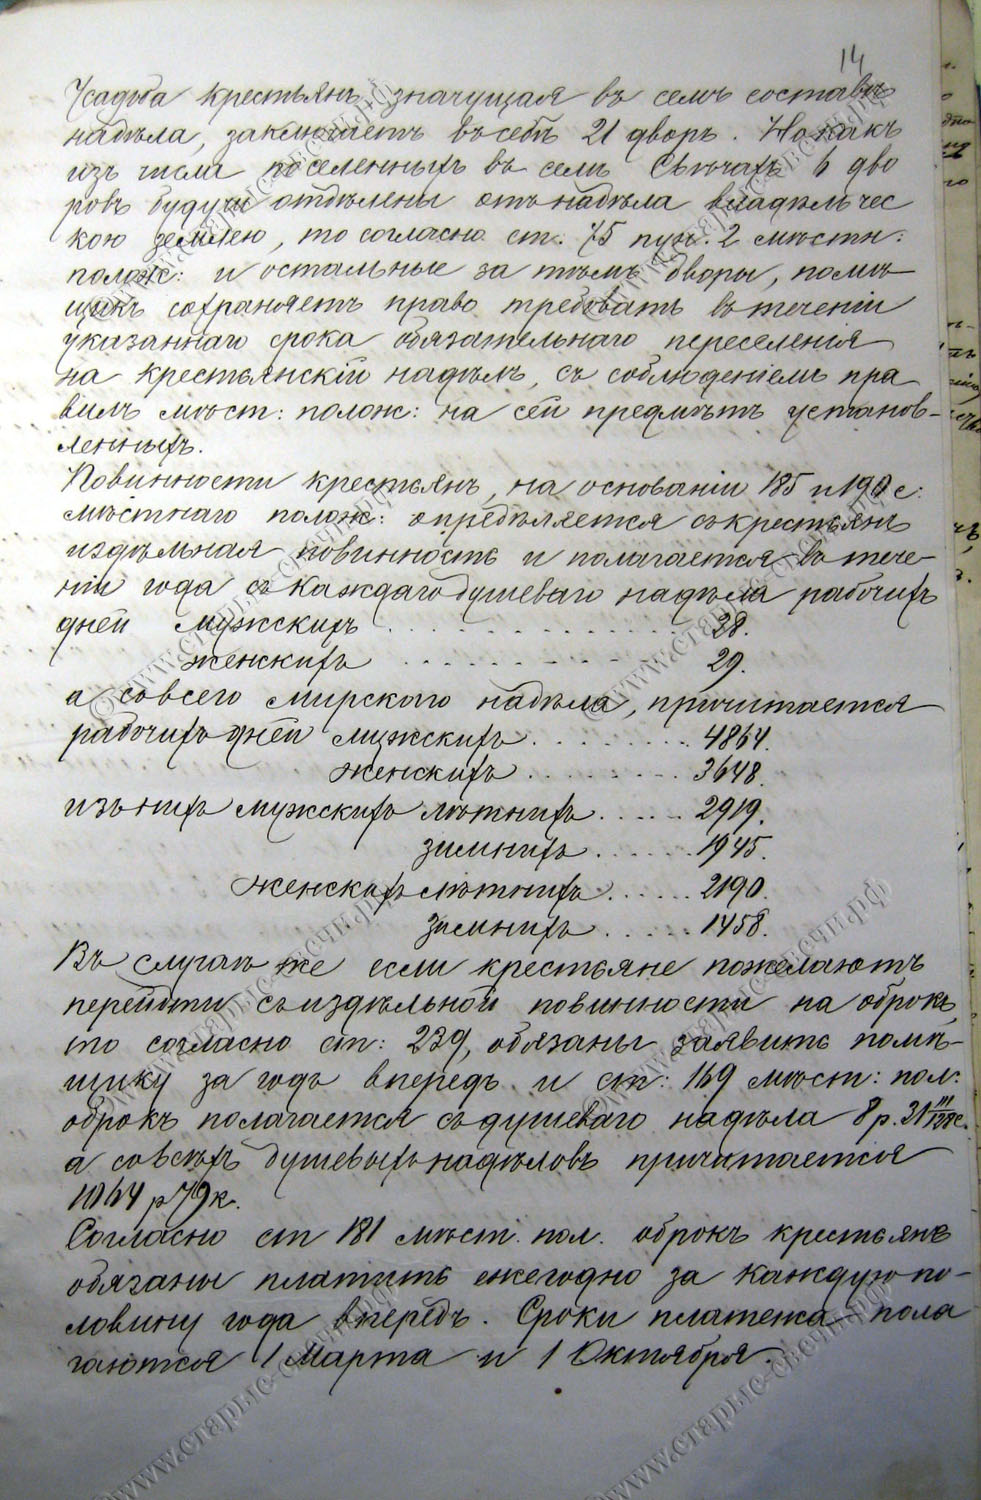 14
Усадьба крестьянъ, значущая въ семъ составѣ
надѣла, заключаетъ въ себѣ 21 дворъ. Но какъ
изъ числа поселенныхъ въ селѣ Свѣчахъ 6 дво
ровъ будучи отдѣлены отъ надѣла владѣльчес
кою землею, то согласно ст. 75 пун. 2 мѣстн:
полож: и остальные за тѣмъ дворы, помѣ-
щикъ сохраняетъ право требовать въ теченіи
указаннаго срока обязательнаго переселенія
на крестьянскій надѣлъ, съ соблюденіемъ пра
вилъ мѣст: полож: на сей предмѣтъ установ-
ленныхъ.
Повинности крестьянъ, на основаніи 185 и 190 с:
мѣстнаго полож: опредѣляется съ крестьянъ
издѣльная повинность и полагается въ тече-
ніи года съ каждаго душеваго надѣла рабочихъ
дней мужскихъ . . . . . . . . . . 38.
женскихъ . . . . . . . . . . 29.
а со всего мирского надѣла, причитается
рабочихъ дней мужскихъ . . . . . . . 4864.
женскихъ . . . . . . . 3648.
изъ нихъ мужскихъ лѣтнихъ . . . . . 2919.
зимнихъ . . . . . . 1945.
женскихъ лѣтнихъ . . . . . 2190.
зимнихъ . . . . . 1458.
Въ случаѣ же если крестьяне пожелаютъ
перейти съ издѣльной повинности на оброкъ,
то согласно ст: 239, обязаны заявить помѣ-
щику за годъ впередъ и ст: 169 мѣст: пол:
оброкъ полагается съ душеваго надѣла 8 р. 31
а со всѣхъ душевыхъ надѣловъ причитается
1064 р 79 к.
Согласно ст 181 мѣст. пол. оброкъ крестьяне
обязаны платить ежегодно за каждую по-
ловину года впередъ. Сроки платежа пола
гаются 1 Марта и 1 Октября.
© www.старые-свечи.рф